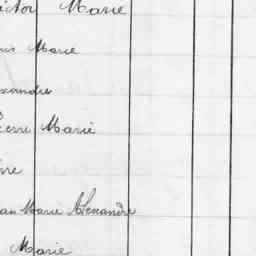 ictor Marie
uis Marie
exandre
ierre Marie
ean Marie Alexandre
Marie